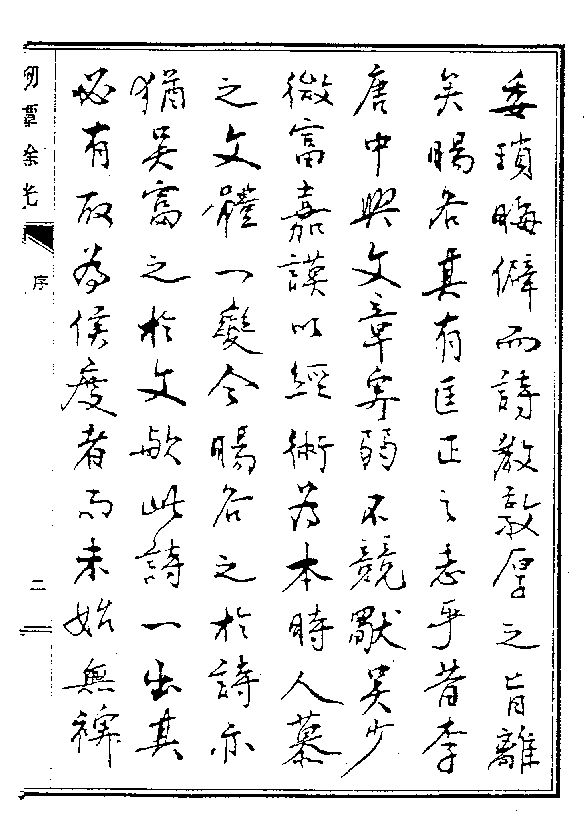 委瑣晦僻而詩教敦厚之旨離
矣暘谷其有匡正之志乎昔李
唐中興文章卑弱不競吳少
微富嘉謨以經術為本時人慕
之文體一變今暘谷之於詩亦
猶吳富之於文歟此詩一出其
必有取為侯度者而未始無裨
序
二